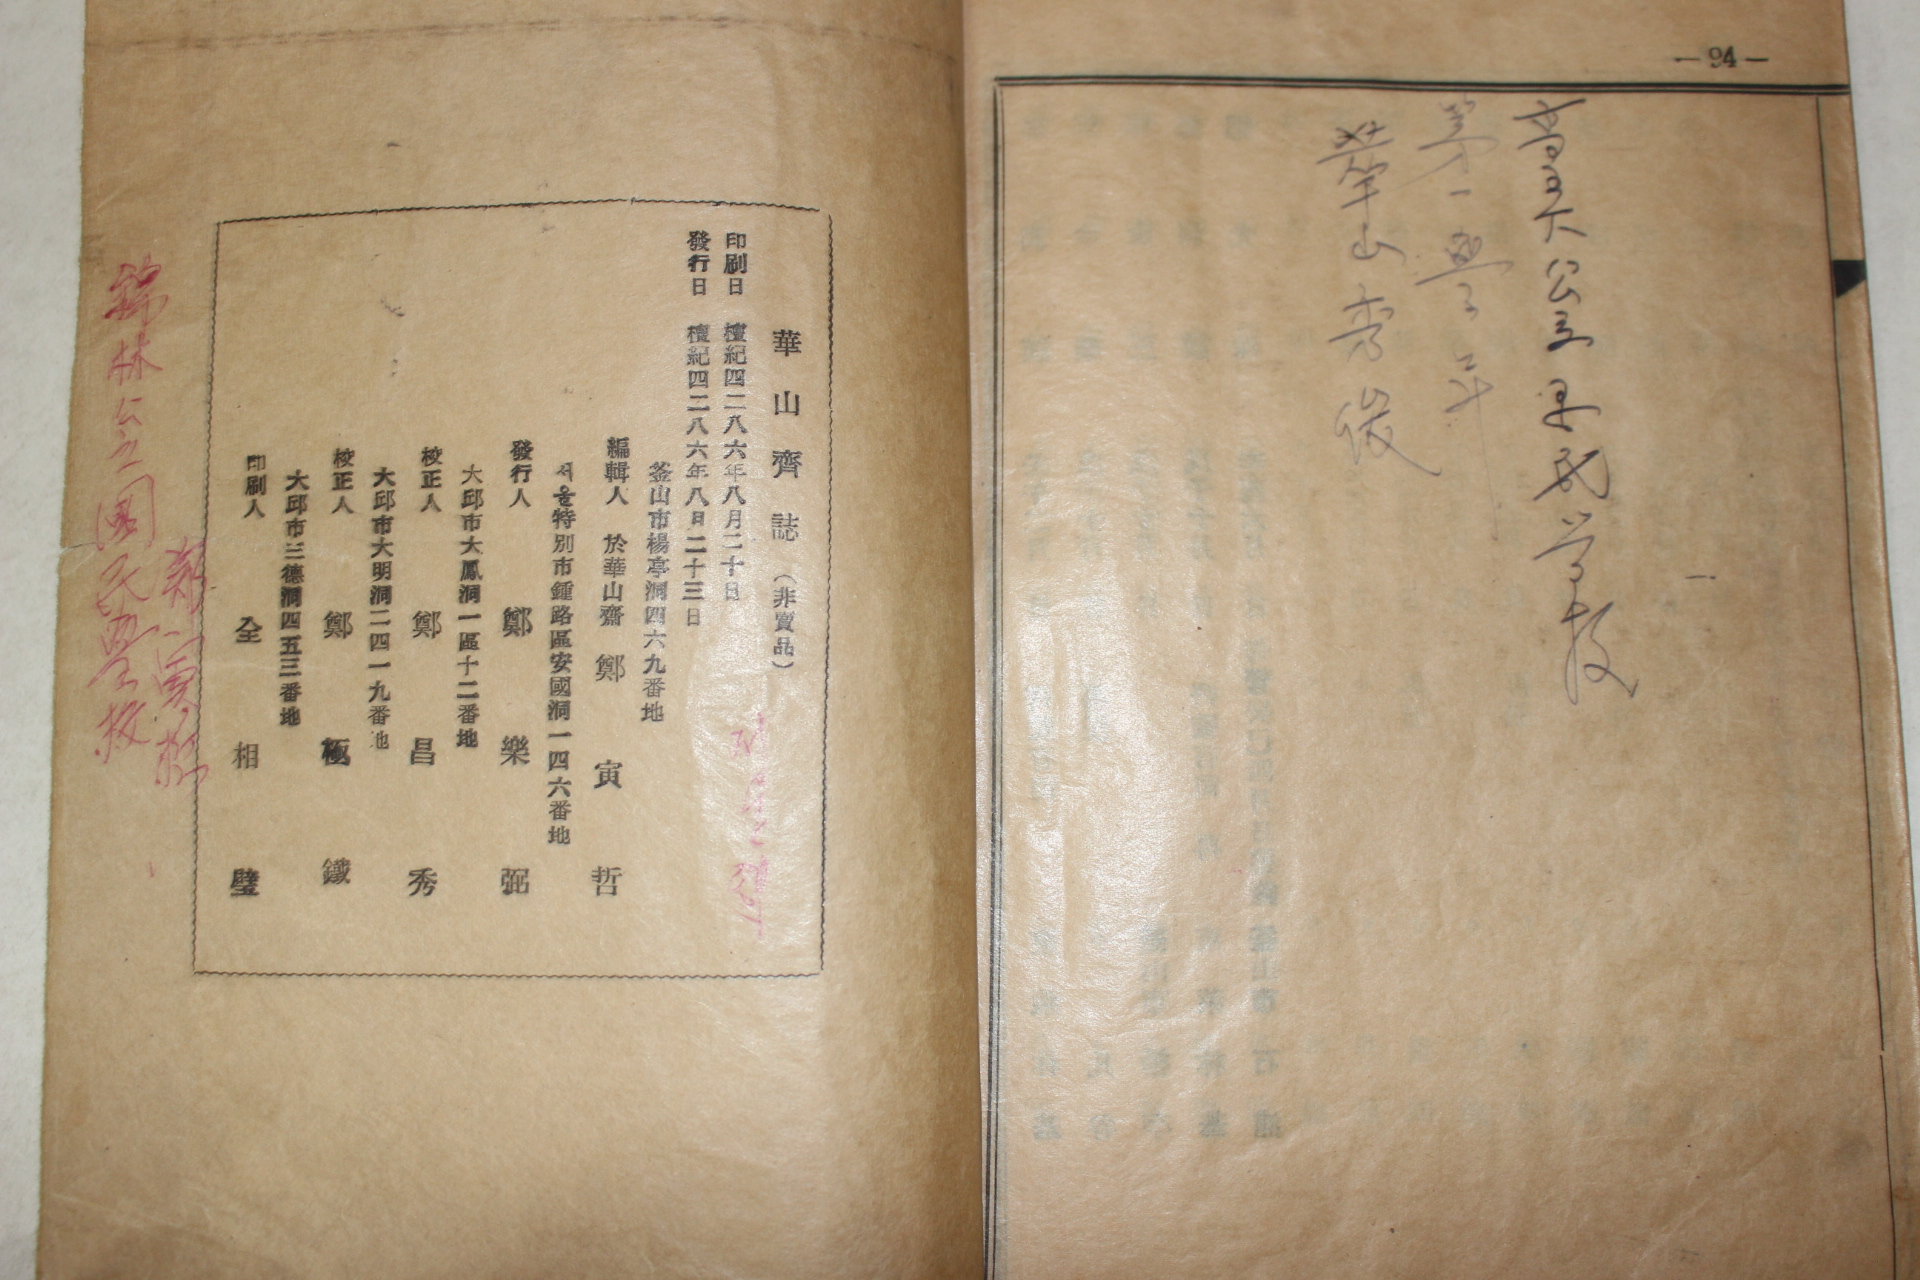 —94—
第一學年
華山秀俊
華山齊誌（非賣品）
印刷日 檀紀四二八六年八月二十日
發行日 檀紀四二八六年八日二十三日
釜山市楊亭洞四六九番地
編輯人 於華山齋 鄭寅哲
서울特別市鍾路區安國洞一四六番地
發行人 鄭樂弼
大邱市大鳳洞一區十二番地
校正人 鄭昌秀
大邱市大明洞二四一九番地
校正人 鄭極鐵
大邱市三德洞四五三番地
印刷人 全相璧
錦林公立國民學校